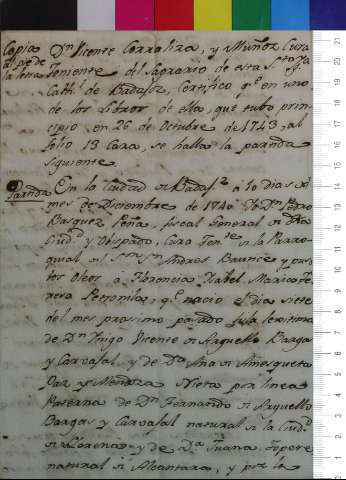 Copia
al pie de
la letra
Dn Vicente Corraliza, y Muñoz Cura
Teniente del Sagrario de esta Sta Yg.
Cathl de Badajoz, Certifico qe en uno
de los Libros de ella, que tubo prin-
cipio en 26 de Octubre de 1743, al
folio 13 Cara, se halla la partida
siguiente
Partida
En la Ciudad de Badajz a 10 dias del
mes de Diciembre de Dn Pedro
Basquez Peña, fiscal General de dha
Ciudd y Obispado, Cura Tente en la Parro-
quial de Sn Andres Bauticé y pus
los Oleos a Florencia Ysabel Maria Te-
resa Petronila, qe nacio el dia siete
del mes proximo pasado hija lexitima
de Dn Yñigo Vicente de Arguello Bargas
y Carvajal y de Da Ana de Amesqueta
Paz y Mendoza Nieta por linea
Paterna de Dn Fernando de Arguello
Bargas y Carvajal natural de la Ciudd
de Llerena y de Da Juana
natural de Alcantara, y por la